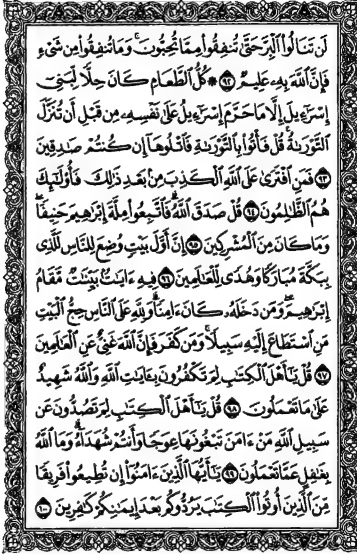 لَن تَنَالُوا۟ ٱلْبِرَّ حَتَّىٰ تُنفِقُوا۟ مِمَّا تُحِبُّونَ ۚ وَمَا تُنفِقُوا۟ مِن شَىْءٍ
فَإِنَّ ٱللَّهَ بِهِۦ عَلِيمٌ ﴿٩٢﴾ ۞ كُلُّ ٱلطَّعَامِ كَانَ حِلًّا لِّبَنِىٓ
إِسْرَٰٓءِيلَ إِلَّا مَا حَرَّمَ إِسْرَٰٓءِيلُ عَلَىٰ نَفْسِهِۦ مِن قَبْلِ أَن تُنَزَّلَ
ٱلتَّوْرَىٰةُ ۗ قُلْ فَأْتُوا۟ بِٱلتَّوْرَىٰةِ فَٱتْلُوهَآ إِن كُنتُمْ صَٰدِقِينَ
﴿٩٣﴾ فَمَنِ ٱفْتَرَىٰ عَلَى ٱللَّهِ ٱلْكَذِبَ مِنۢ بَعْدِ ذَٰلِكَ فَأُو۟لَٰٓئِكَ
هُمُ ٱلظَّٰلِمُونَ ﴿٩٤﴾ قُلْ صَدَقَ ٱللَّهُ ۗ فَٱتَّبِعُوا۟ مِلَّةَ إِبْرَٰهِيمَ حَنِيفًا ۖ
وَمَا كَانَ مِنَ ٱلْمُشْرِكِينَ ﴿٩٥﴾ إِنَّ أَوَّلَ بَيْتٍ وُضِعَ لِلنَّاسِ لَلَّذِى
بِبَكَّةَ مُبَارَكًا وَهُدًى لِّلْعَٰلَمِينَ ﴿٩٦﴾ فِيهِ ءَايَٰتٌۢ بَيِّنَٰتٌ مَّقَامُ
إِبْرَٰهِيمَ ۖ وَمَن دَخَلَهُۥ كَانَ ءَامِنًا ۗ وَلِلَّهِ عَلَى ٱلنَّاسِ حِجُّ ٱلْبَيْتِ
مَنِ ٱسْتَطَاعَ إِلَيْهِ سَبِيلًا ۚ وَمَن كَفَرَ فَإِنَّ ٱللَّهَ غَنِىٌّ عَنِ ٱلْعَٰلَمِينَ
﴿٩٧﴾ قُلْ يَٰٓأَهْلَ ٱلْكِتَٰبِ لِمَ تَكْفُرُونَ بِـَٔايَٰتِ ٱللَّهِ وَٱللَّهُ شَهِيدٌ
عَلَىٰ مَا تَعْمَلُونَ ﴿٩٨﴾ قُلْ يَٰٓأَهْلَ ٱلْكِتَٰبِ لِمَ تَصُدُّونَ عَن
سَبِيلِ ٱللَّهِ مَنْ ءَامَنَ تَبْغُونَهَا عِوَجًا وَأَنتُمْ شُهَدَآءُ ۗ وَمَا ٱللَّهُ
بِغَٰفِلٍ عَمَّا تَعْمَلُونَ ﴿٩٩﴾ يَٰٓأَيُّهَا ٱلَّذِينَ ءَامَنُوٓا۟ إِن تُطِيعُوا۟ فَرِيقًا
مِّنَ ٱلَّذِينَ أُوتُوا۟ ٱلْكِتَٰبَ يَرُدُّوكُم بَعْدَ إِيمَٰنِكُمْ كَٰفِرِينَ ﴿١٠٠﴾